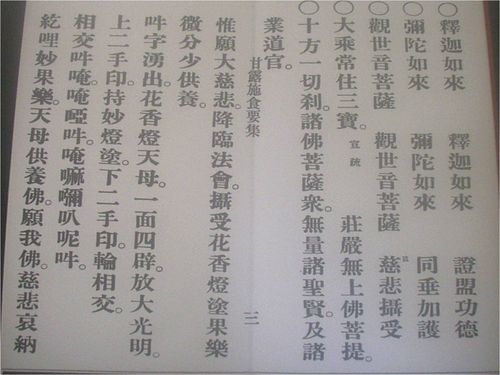 ○釋迦如來 釋迦如來 證盟功德
○彌陀如來 彌陀如來 同垂加護
○觀世音菩薩 觀世音菩薩 慈悲攝受
○大乘常住三寶。宣疏 莊嚴無上佛菩提。
○十方一切刹。諸佛菩薩衆。無量諸聖賢。及諸
業道官。
甘露施食要集 三
惟願大慈悲。降臨法會。攝受花香燈塗果樂
微分少供養。
吽字湧出。花香燈天母。一面四臂。放大光明。
上二手印。持妙燈塗。下二手印。輪相交。
相交吽唵。唵啞吽。唵嘛嚩叭呢吽。
紇哩妙果樂。天母供養佛。願我佛。慈悲哀納